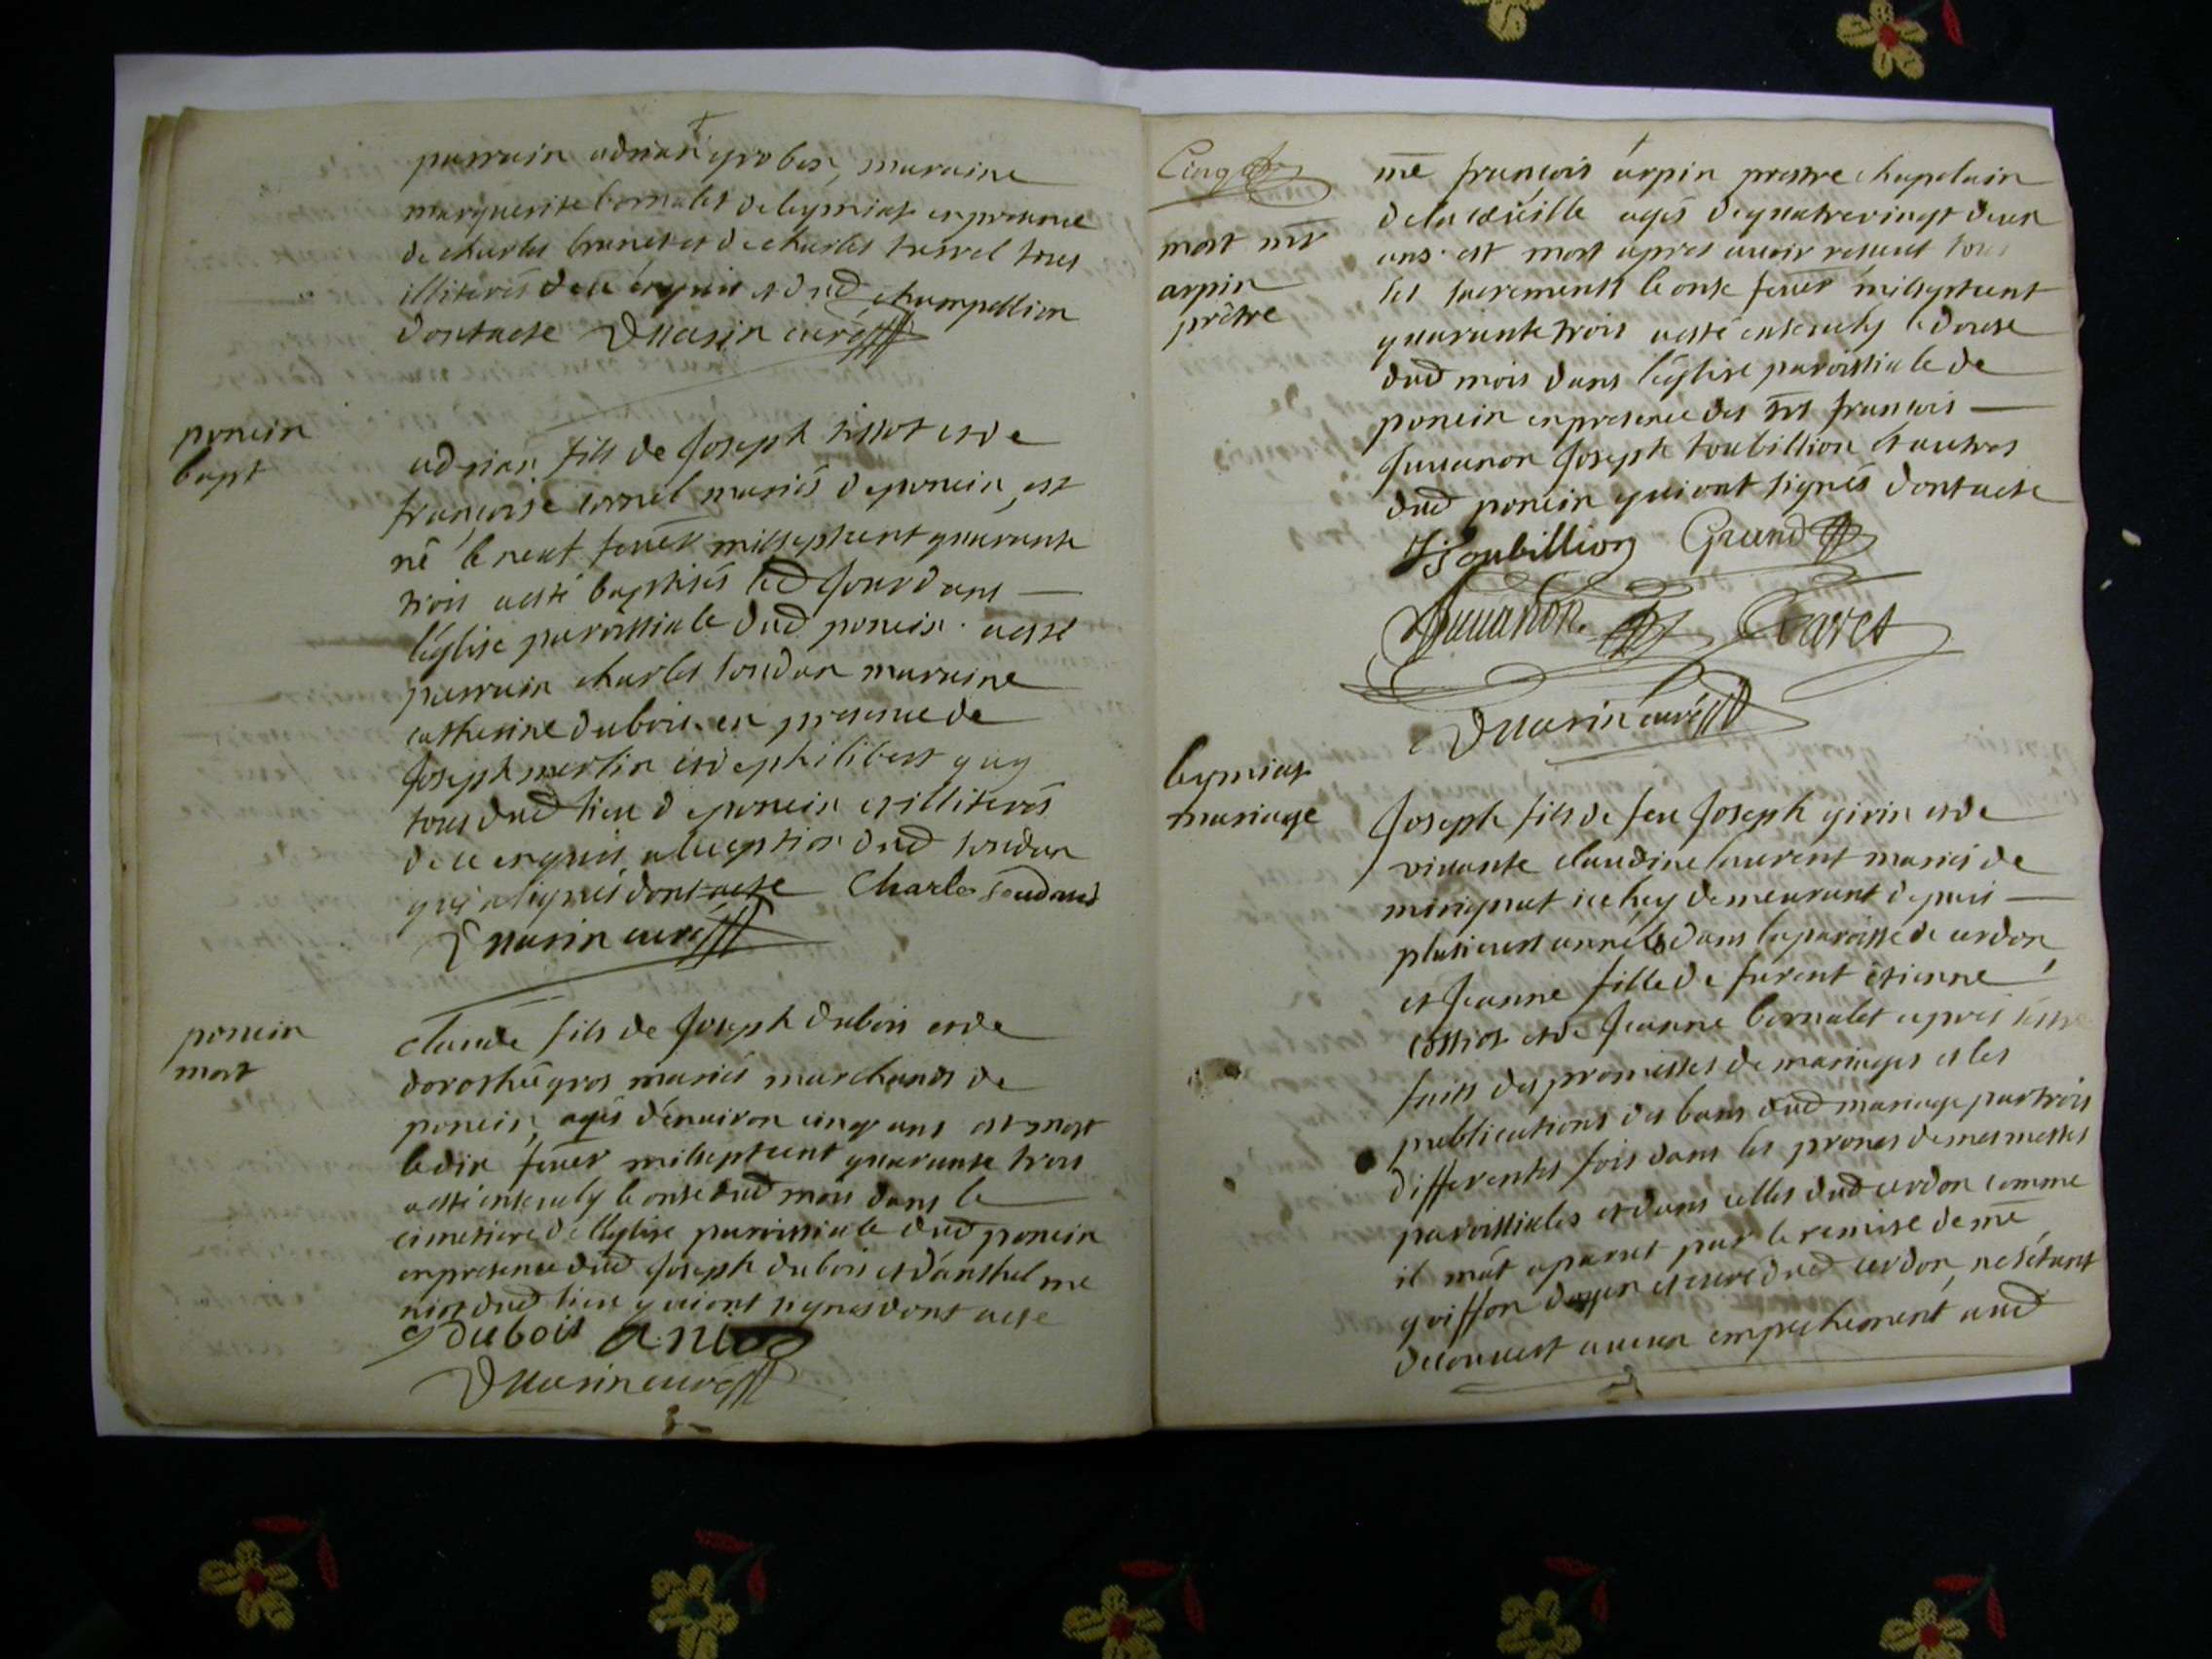 parrain adrian grobas, maraine
marguerite bornalet de leymiat en presence
de charles brunet et de charles tresrel tous
illiterés de ce enquis et dud champollion
dontacte Duasin curé
poncin
bapt
adrian fils de Joseph tissot et de
françoise cornel mariés de poncin, est
né le neuf feuer millseptcent quarante
trois aesté baptisés led Jour dans
l'église paroissiale dud poncin. aesté
parrain charles soudan maraine
catherine dubois en presence de
Joseph merlin et de philibert guy
tous dud lieu de poncin et illiterés
de ce enquis, a lexception dud soudan
qui a signés dontacte Charle soudand
Duasin curé
poncin
mort
claude fils de Joseph dubois et de
dorothé gros mariés marchands de
poncin, agés d'enuiron cinq ans est mort
ledix feuer millseptcent quarante trois
aesté enseuely le onse dud mois dans le
cimetiere de l'église paroissiale dud poncin
en presence dud Joseph dubois et d'anthelme
niot dud lieu qui ont signés dont acte
J dubois a. niod
Duasin curé
Cinq
mort mr
arpin
prêtre
me françois arpin prestre chapelain
de la cœüille agés de quatrevingt deux
ans. est mort apres auoir reseut tous
les sacrements le onse feuer millseptcent
quarante trois aesté enseuely le douse
dud mois dans l'église paroissiale de
poncin en presence des srs francois
Juuanon Joseph toubillion et autres
dud poncin qui ont signés dontacte
J Toubillion Grand
Juuanon Cavet
Duasin curé
leymiat
mariage
Joseph fils de feu Joseph girin et de
viuante claudine laurent mariés de
merignat icelluy demeurant depuis
plusieurs années dans la paroisse de cerdon,
et Jeanne fille de furent étienne
cottiot et de Jeanne bornalet apres
faits des promesses de mariages et les
publications des bans dud mariage par trois
differentes fois dans les prones de mes messes
paroissiales et dans celles dud cerdon comme
il m'at aparut par le remise de me
goiffon doyen et curé dud cerdon, ne sétant
decouuert aucun empechement aud